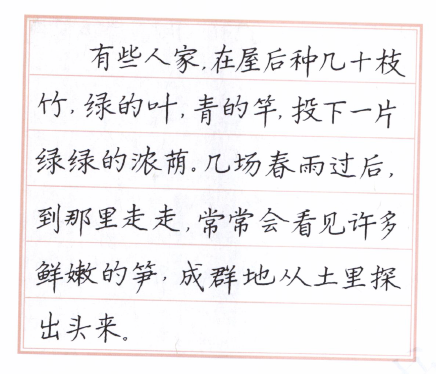 有些人家,在屋后种几十枝
竹,绿的叶,青的竿,投下一片
绿绿的浓荫。几场春雨过后,
到那里走走,常常会看见许多
鲜嫩的笋,成群地从土里探
出头来。